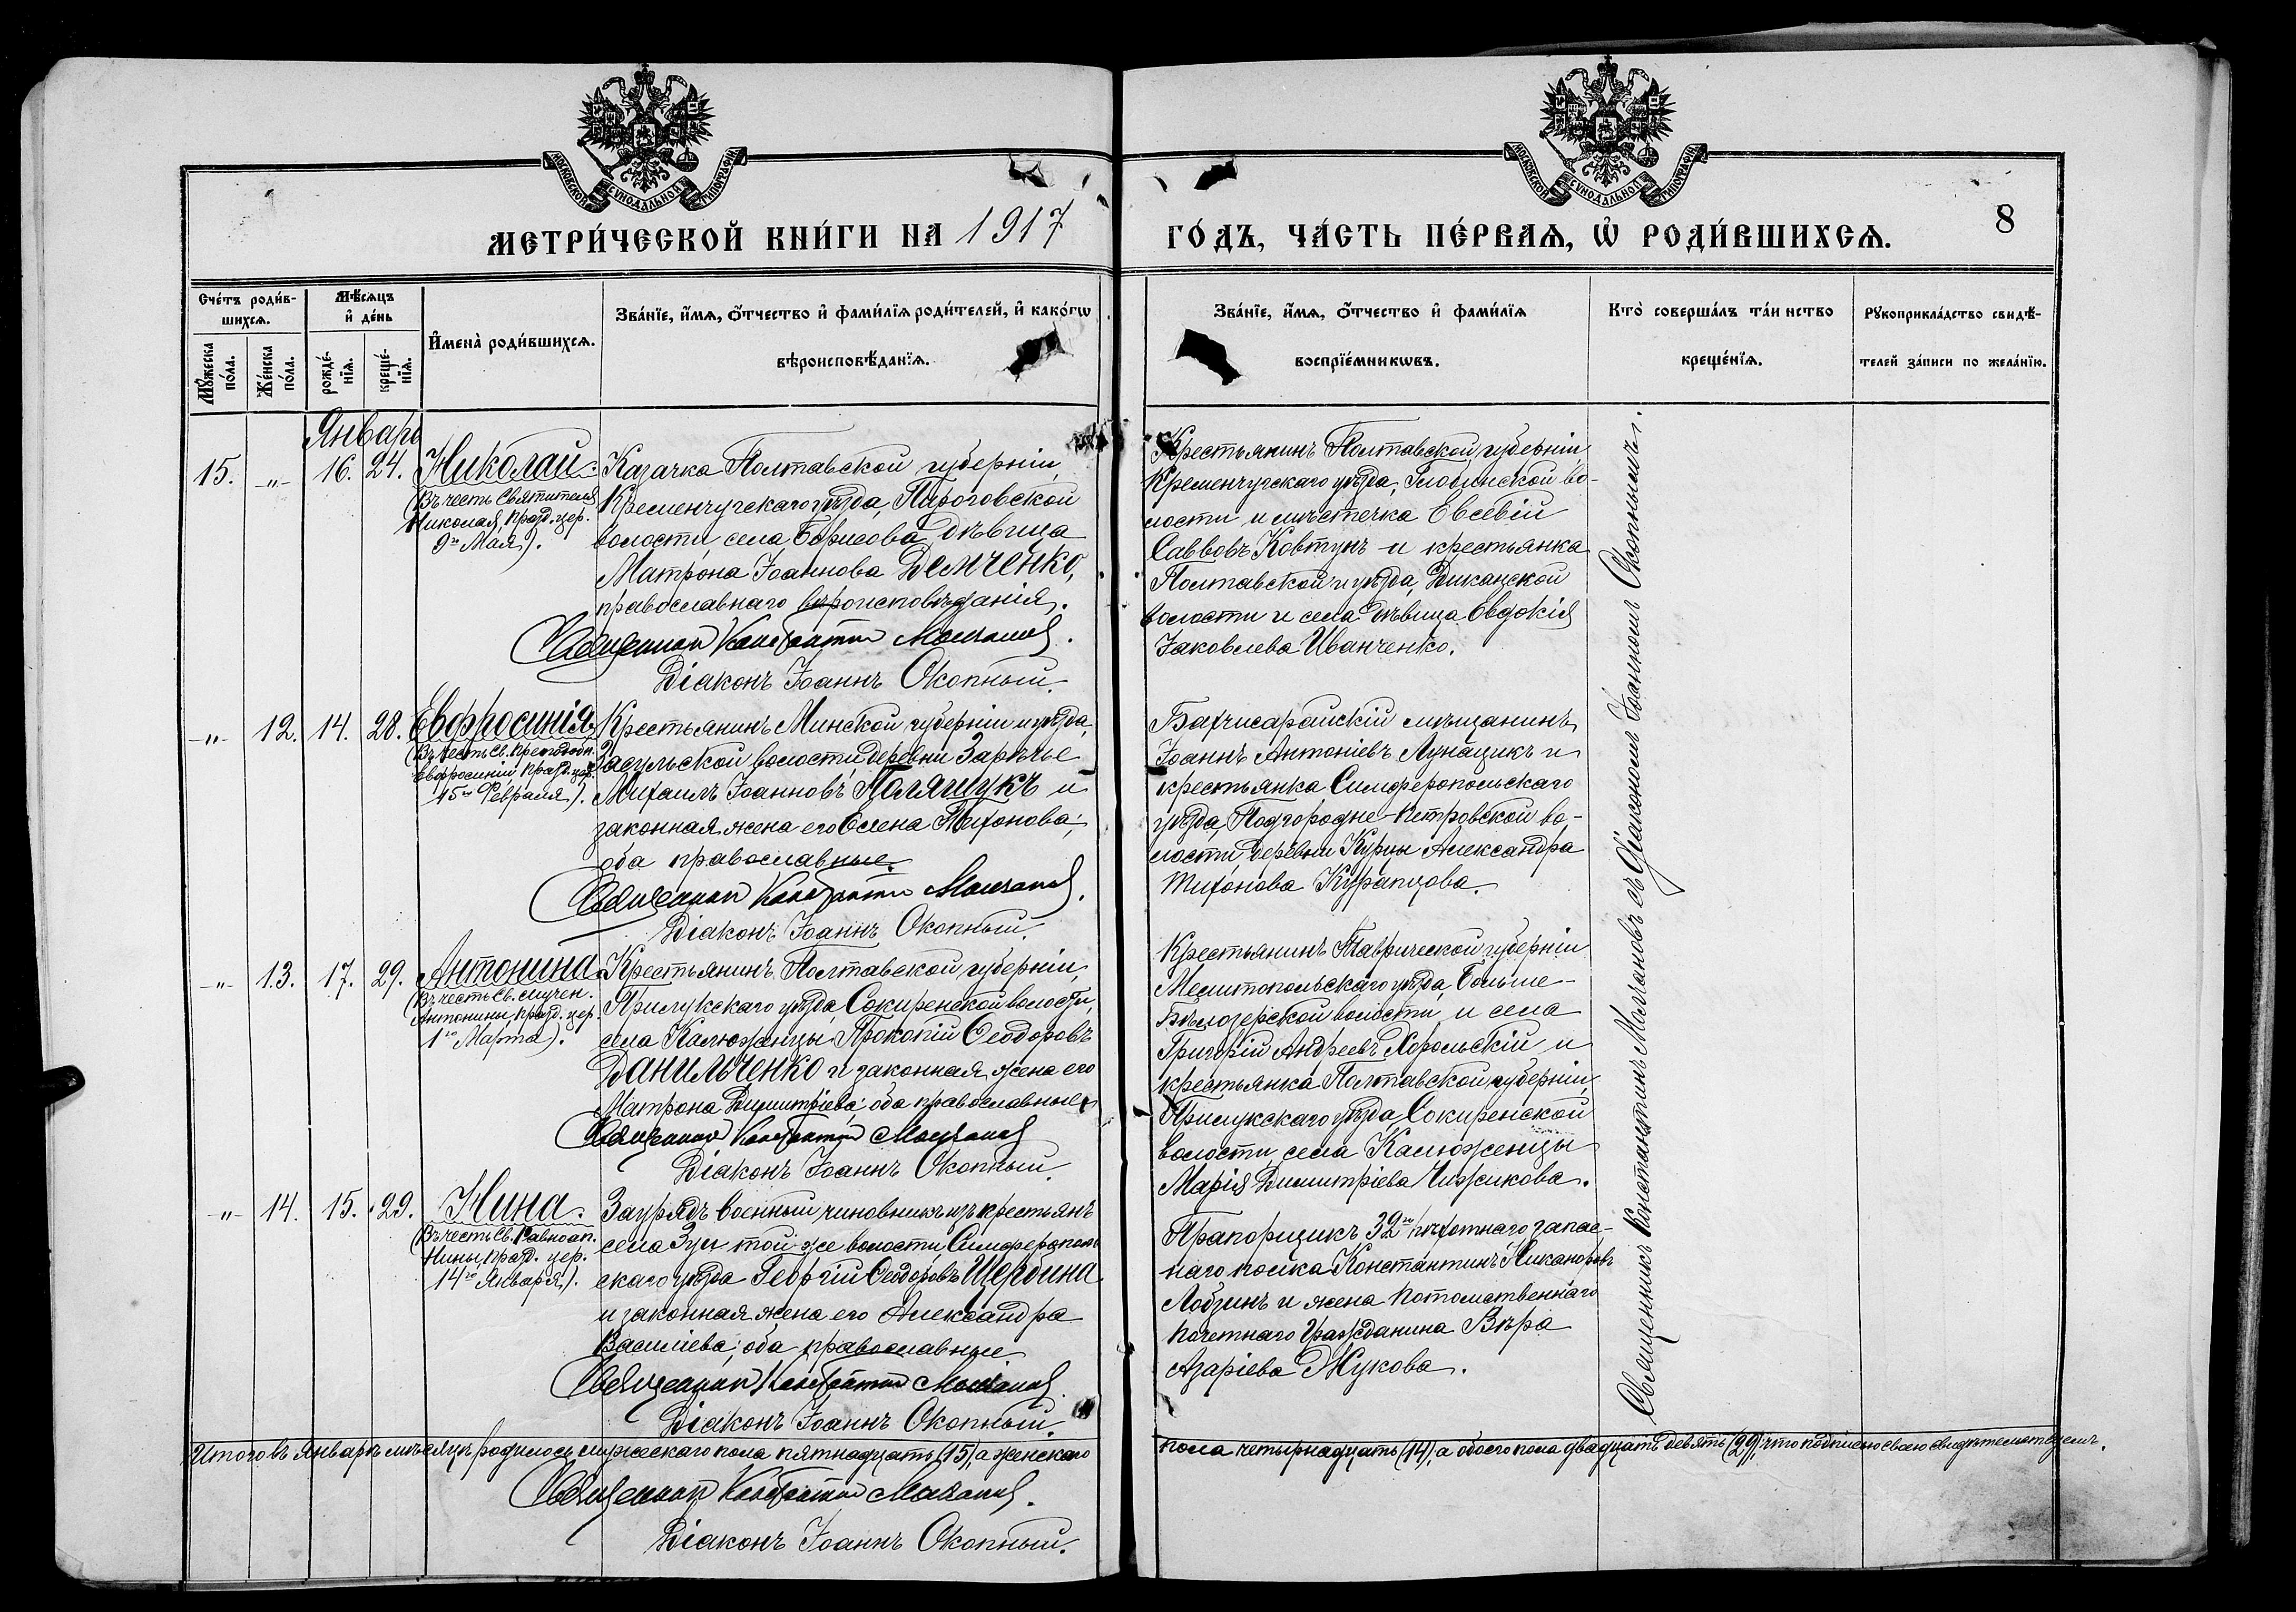 МОСКОВСКОЙ СѴНОДАЛЬНОЙ ТИПОГРАФІИ
МОСКОВСКОЙ СѴНОДАЛЬНОЙ ТИПОГРАФІИ
МЕТРИ́ЧЕСКОЙ КНИ́ГИ НА 1917
ГО́ДЪ, ЧА́СТЬ ПЕ́РВАЯ, Ѡ҆ РОДИ́ВШИХСЯ.
8
Сче́тъ роди́в-
шихся.
Мѣ́сяцъ
и҆ де́нь
Мꙋ́жеска
по́ла.
Же́нска
по́ла.
рожде́-
нїя.
креще́-
нїя.
И҆мена̀ роди́вшихся.
Зва́нїе, и҆́мя, ѻ҆́тчество и҆ фами́лїя роди́телей, и҆ како́гѡ
вѣроисповѣ́данїя.
Зва́нїе, и҆́мя, ѻ҆́тчество и҆ фами́лїя
воспрїе́мникѡвъ.
Кто̀ соверша́лъ та́инство
креще́нїя.
Рꙋкоприкла́дство свидѣ́-
телей за́писи по жела́нїю.
Январь
15. -"- 16. 24. Николай.
(Въ честь Святителя
Николая, празд. цер.
9го Мая).
Казачка Полтавской губерніи,
Кременчугскаго уѣзда, Пироговской
волости, села Борисова, дѣвица
Матрона Іоаннова Демченко,
православнаго вѣроисповѣданія.
Священникъ Константинъ Молчановъ.
Діаконъ Іоаннъ Окопный.
Крестьянинъ Полтавской губерніи,
Кременчугскаго уѣзда, Глобинской во-
лости и мѣстечка Евсевій
Саввовъ Ковтунъ и крестьянка
Полтавской и уѣзда, Диканской
волости и села дѣвица Евдокія
Іаковлева Иванченко.
-"- 12. 14. 28. Евфросинія.
(Въ честь Св. Преподобн.
Евфросиніи празд. цер.
15го Февраля).
Крестьянинъ Минской губерніи и уѣзда,
Засульской волости, деревни Зарѣчье
Михаилъ Іоанновъ Полящукъ и
законная жена его Елена Тихонова;
оба православные.
Священникъ Константинъ Молчановъ.
Діаконъ Іоаннъ Окопный.
Бахчисарайскій мѣщанинъ
Іоаннъ Антоніевъ Лунащикъ и
крестьянка Симферопольскаго
уѣзда, Подгородне-Петровской во-
лости, деревни Курцы Александра
Тихонова Курапцова.
-"- 13. 17. 29. Антонина.
(Въ честь Св. мучен.
Антонины, празд. цер.
1го Марта).
Крестьянинъ Полтавской губерніи,
Прилукскаго уѣзда, Сокиренской волости,
села Калюженцы Прокопій Ѳеодоровъ
Данильченко и законная жена его
Матрона Димитріева; оба православные.
Священникъ Константинъ Молчановъ
Діаконъ Іоаннъ Окопный.
Крестьянинъ Таврической губерніи
Мелитопольскаго уѣзда, Больше-
Бѣлозерской волости и села
Григорій Андреевъ Хорольскій и
крестьянка Полтавской губерніи,
Прилукскаго уѣзда, Сокиренской
волости, села Калюженцы
Марія Димитріева Чижикова.
-"- 14. 15. 29. Нина.
(Въ честь Св. Равноап.
Нины, празд. цер.
14го Января).
Заурядъ военный чиновникъ изъ крестьянъ
села Зуи той-же волости Симферополь-
скаго уѣзда Георгій Ѳеодоровъ Щербина
и законная жена его Александра
Василіева; оба православные
Священникъ Константинъ Молчановъ.
Діаконъ Іоаннъ Окопный.
Прапорщикъ 32го пѣхотнаго запас-
наго полка Константинъ Никаноровъ
Лобзинъ и жена потомственнаго
почетнаго гражданина Вѣра
Азаріева Жукова.
Священникъ Константинъ Молчановъ съ діакономъ Іоанномъ Окопнымъ.
Итого въ Январѣ мѣсяцѣ родилось мужескаго пола пятнадцать (15), а женскаго
пола четырнадцать (14), а обоего пола двадцать девять (29), что подписью своею свидѣтельствуемъ.
Священникъ Константинъ Молчановъ.
Діаконъ Іоаннъ Окопный.